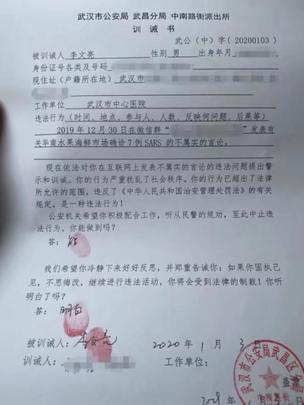 武汉市公安局 武昌分局 中南路街派出所
训 诫 书
武公(中)字(20200103)
被训诫人 李文亮 性别 男 出身年月
身份证号各类及号码
现住址（户籍所在地） 武汉市
工作单位 武汉市中心医院
违法行为（时间、地点、参与人、人数、反映何问题、后果等）
2019年12月30日在微信群“ ”发表有
关华南水果海鲜市场确诊7例SARS的不属实的言论。
现在依法对你在互联网上发表不属实的言论的违法问题提出警
示和训诫。你的行为严重扰乱了社会秩序。你的行为已超出了法律
所允许的范围，违反了《中华人民共和国治安管理处罚法》的有关
规定，是一种违法行为！
公安机关希望你积极配合工作，听从民警的规劝，至此中止违
法行为。你能做到吗？
答：能
我们希望你冷静下来好好反思，并郑重告诫你：如果你固执己
见，不思悔改，继续进行违法活动，你将会受到法律的制裁！你听
明白了吗？
答：明白
被训诫人：李文亮 2020年1月3日
训诫人： 工作单位：
武汉市公安局武昌区